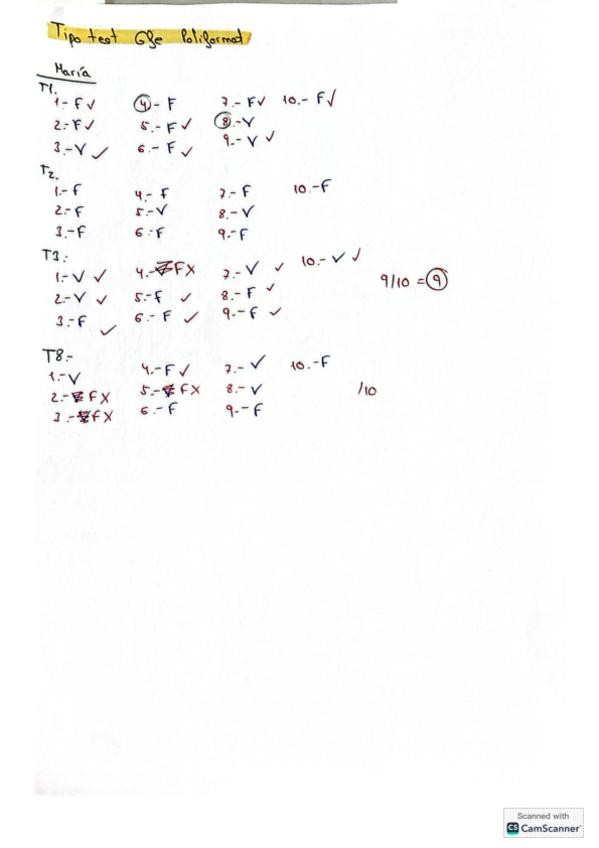 Tipo test Gfe Poliformat
María
T1.
1.- F ✓ 4.- F 7.- F ✓ 10.- F ✓
2.- F ✓ 5.- F ✓ 8.- V
3.- V ✓ 6.- F ✓ 9.- V ✓
T2.
1.- F 4.- F 7.- F 10.- F
2.- F 5.- V 8.- V
3.- F 6.- F 9.- F
T3.-
1.- V ✓ 4.- F X 7.- V ✓ 10.- V ✓
2.- V ✓ 5.- F ✓ 8.- F ✓ 9/10 = 9
3.- F ✓ 6.- F ✓ 9.- F ✓
T8.-
1.- V 4.- F ✓ 7.- V 10.- F
2.- F X 5.- F X 8.- V /10
3.- F X 6.- F 9.- F
Scanned with
CS CamScanner